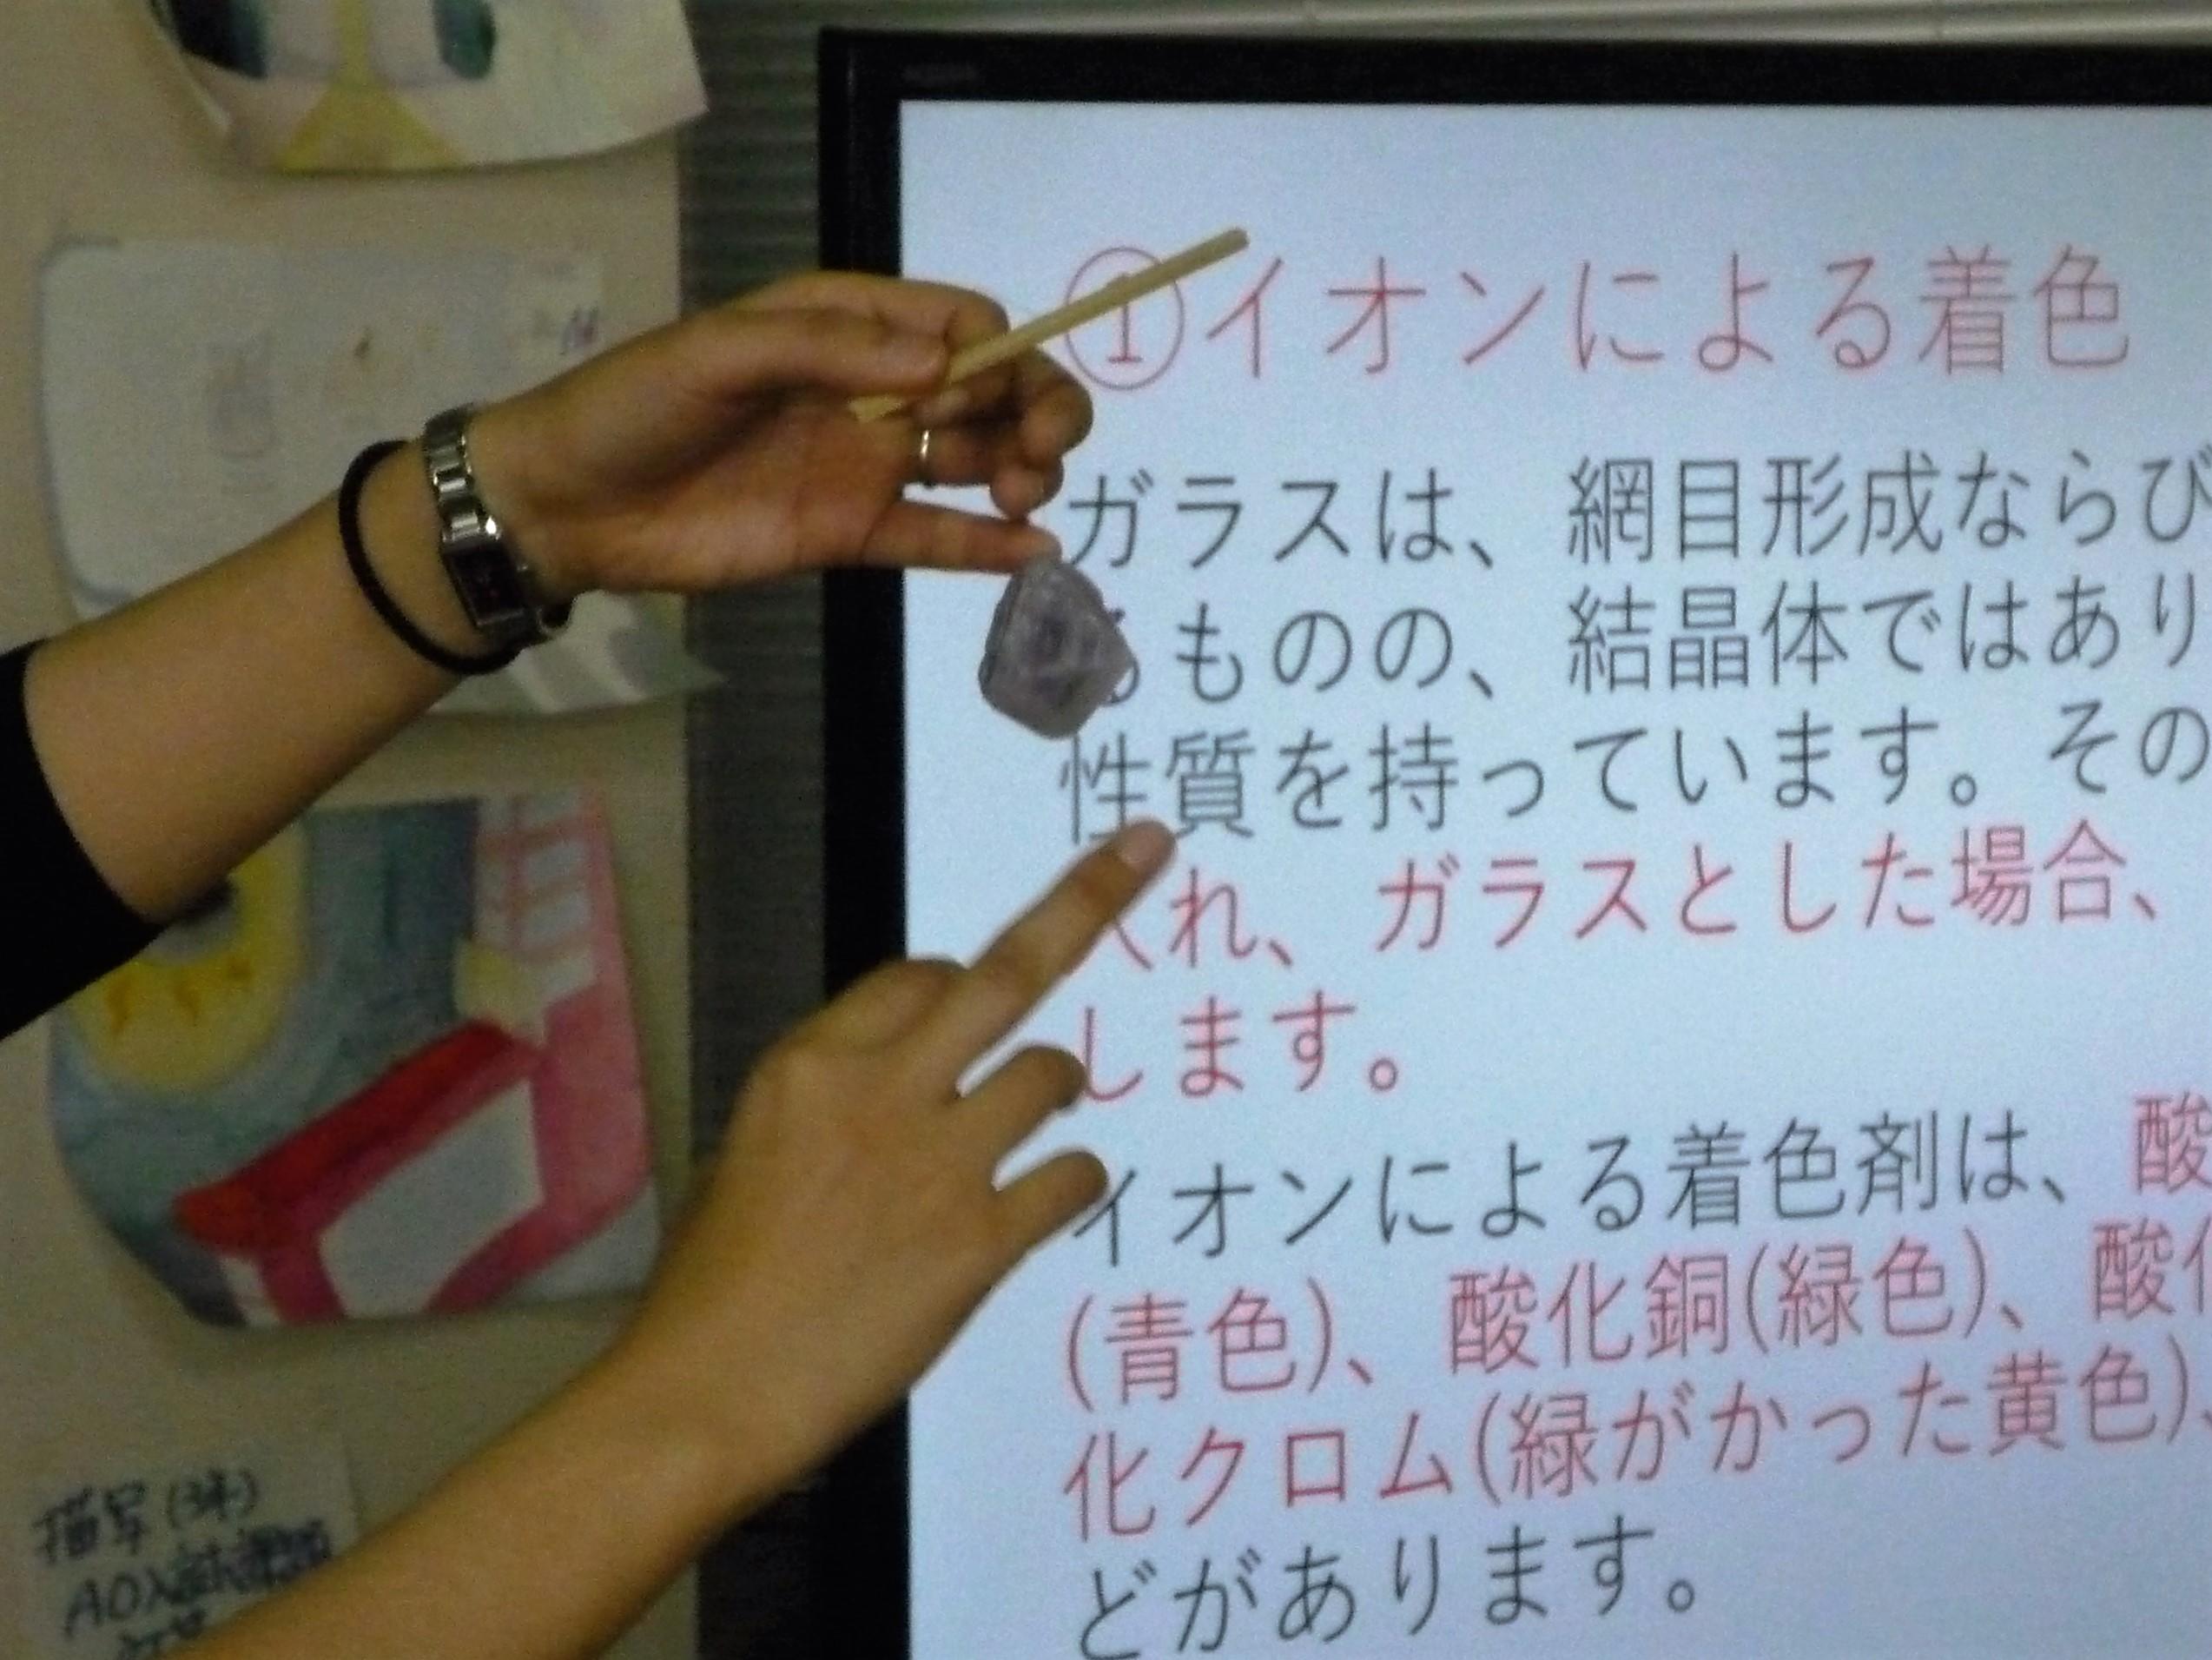 ①イオンによる着色
ガラスは、網目形成ならび
るものの、結晶体ではあり
性質を持っています。その
入れ、ガラスとした場合、
します。
イオンによる着色剤は、酸
(青色)、酸化銅(緑色)、酸化
化クロム(緑がかった黄色)、
どがあります。
描写(3未)
AO入試課題